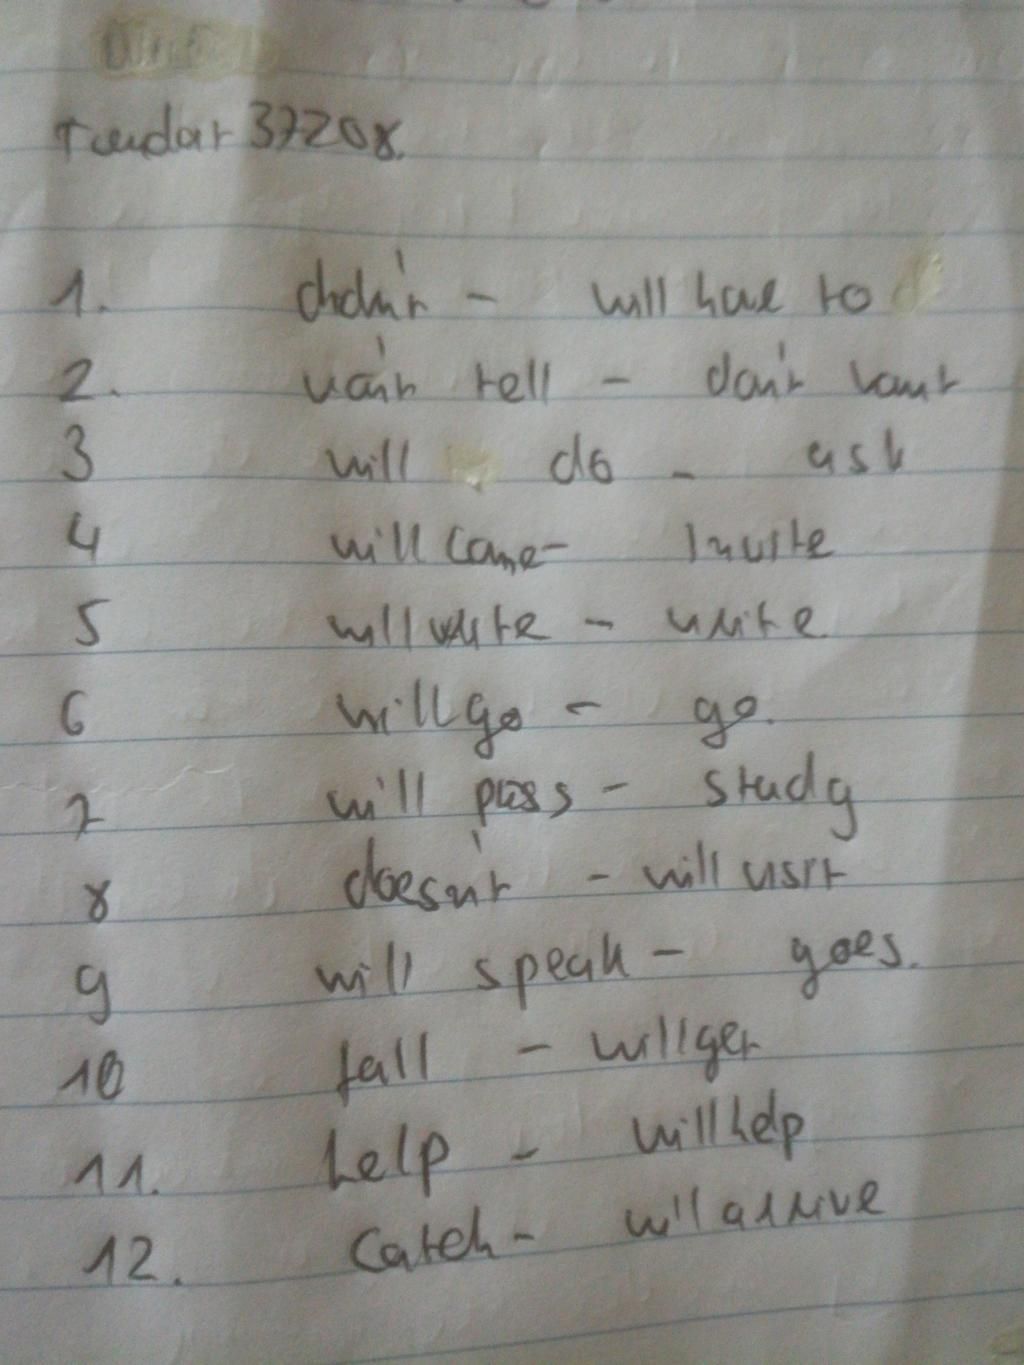 1. didn't - will have to
2. won't tell - don't want
3 will do - ask
4 will come - Invite
5 will write - write
6 will go - go.
7 will pass - study
8 doesn't - will visit
9 will speak - goes.
10 fall - will get
11. help - will help
12. Catch - will arrive